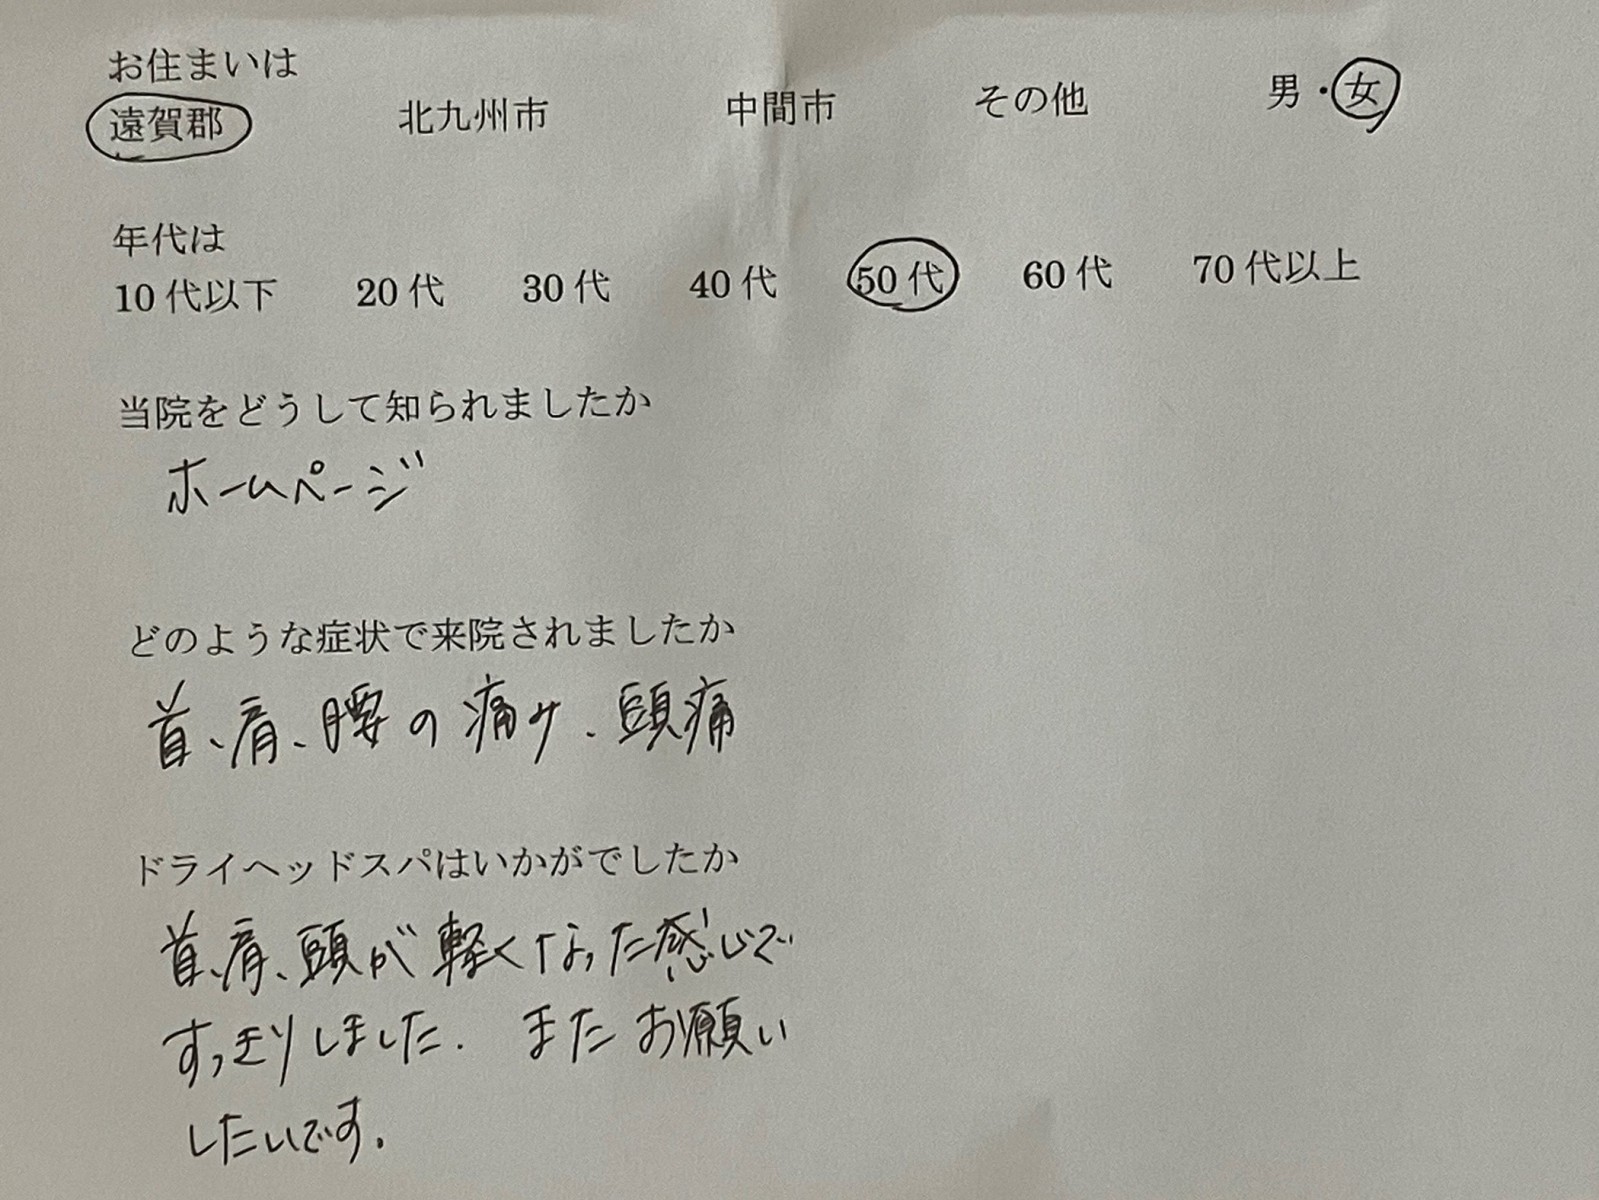 お住まいは
遠賀郡 北九州市 中間市 その他 男・女
年代は
10代以下 20代 30代 40代 50代 60代 70代以上
当院をどうして知られましたか
ホームページ
どのような症状で来院されましたか
首、肩、腰の痛み、頭痛
ドライヘッドスパはいかがでしたか
首、肩、頭が軽くなった感じで
すっきりしました. またお願い
したいです.